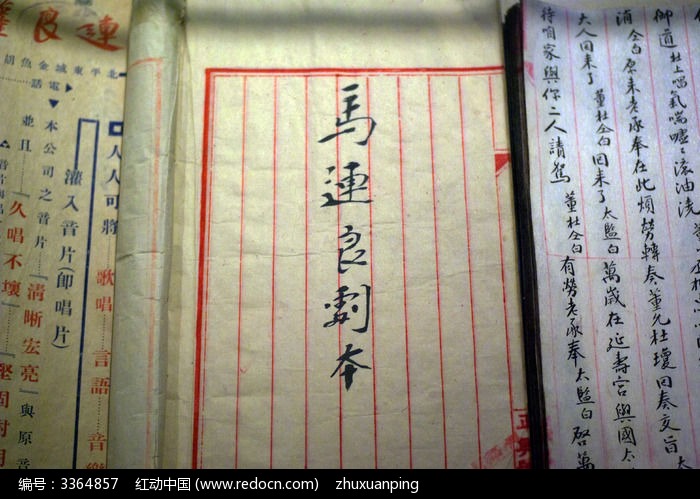 御道 杜上唱 气喘嘘嘘滚油浇
消 仝白 原来老承奉在此煩勞轉奏董允杜瓊回奏交旨
大人回来了 董杜仝白 回来了 太監白 萬歲在延壽宮與國太
待咱家與你二人請駕 董杜仝白 有勞老承奉 太監白 啓萬
馬連良劇本
人人可將歌唱言語音樂
灌入音片(即唱片)
本公司之音片「清晰宏亮」與原音
並且「久唱不壞」「堅固耐用
連良
北平東城金魚胡
電話
编号：3364857 红动中国 (www.redocn.com) zhuxuanping